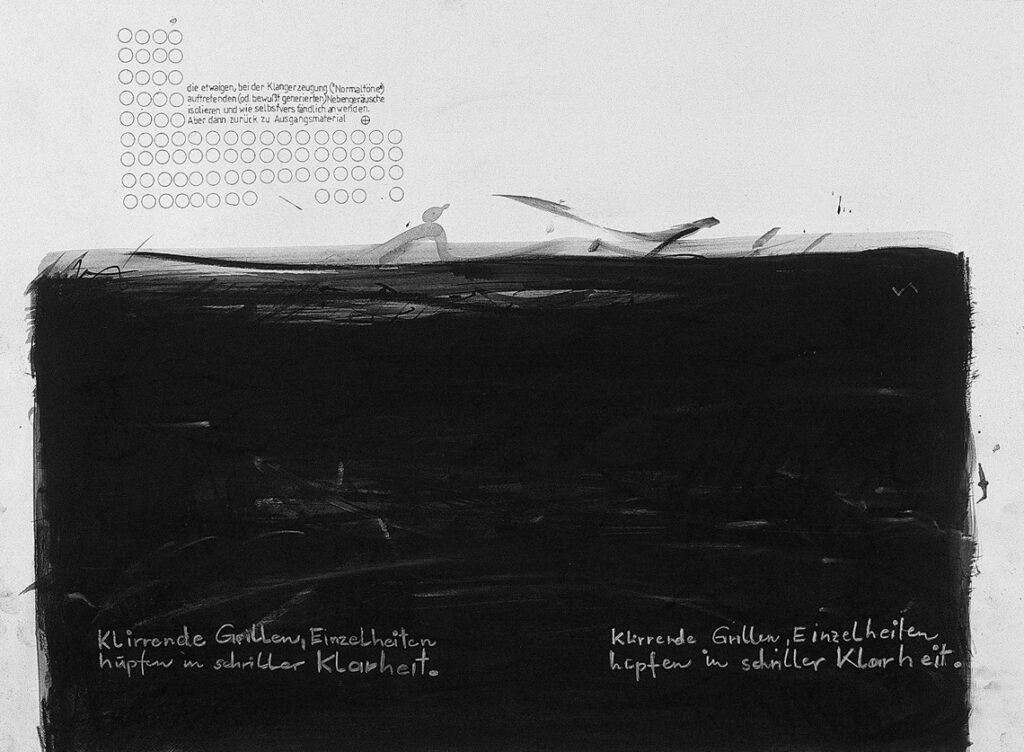 die etwaigen, bei der Klangerzeugung ("Normaltöne")
auftretenden (od. bewußt generierten) Nebengeräusche
isolieren und wie selbstverständlich anwenden.
Aber dann zurück zu Ausgangsmaterial
Klirrende Grillen, Einzelheiten
hüpfen in schriller Klarheit.
Klirrende Grillen, Einzelheiten
hüpfen in schriller Klarheit.